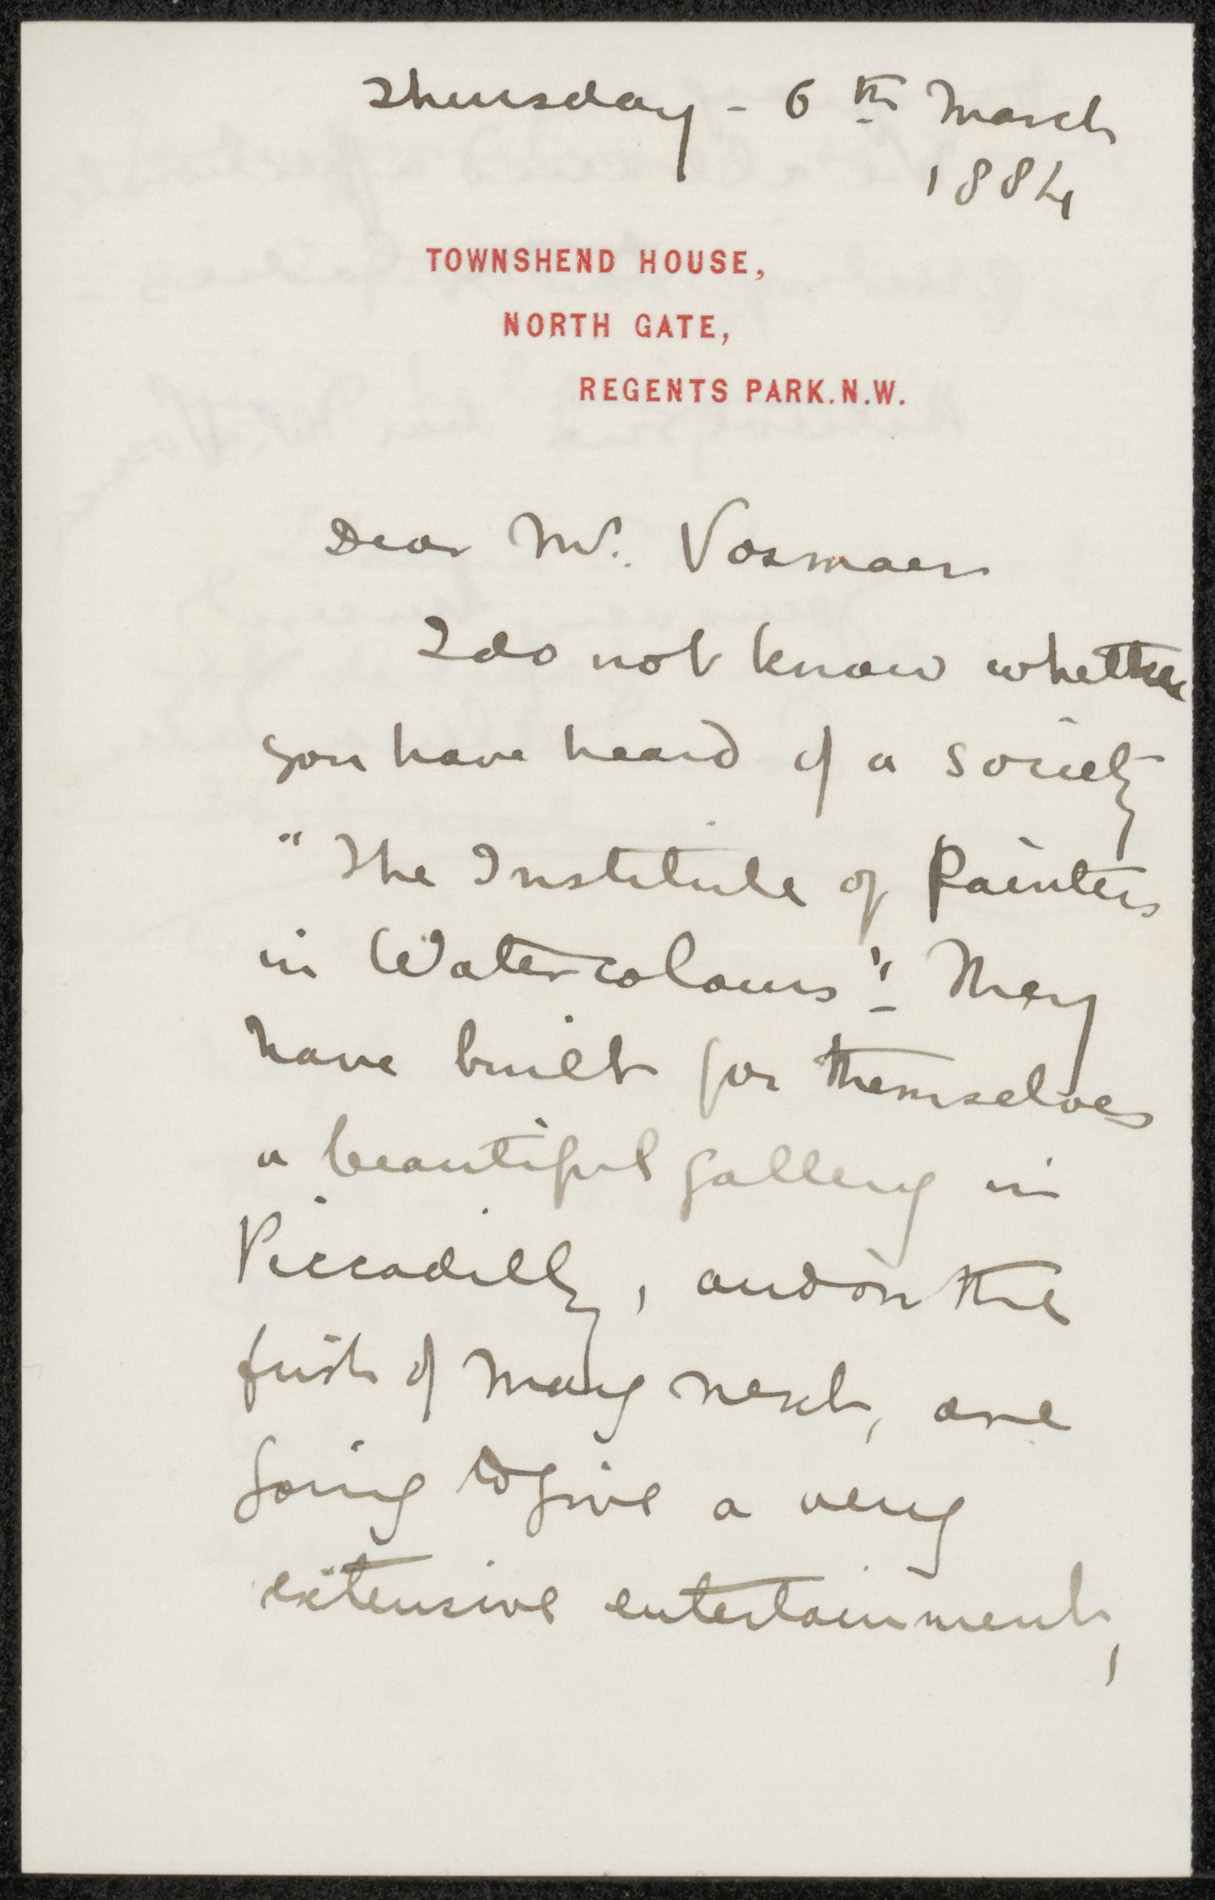 Thursday - 6th March
1884
TOWNSHEND HOUSE,
NORTH GATE,
REGENTS PARK. N.W.
Dear Mr. Vosmaer
I do not know whether
you have heard of a society
"The Institute of Painters
in Watercolours". They
have built for themselves
a beautiful gallery in
Piccadilly, and on the
first of May next, are
going to give a very
extensive entertainment,